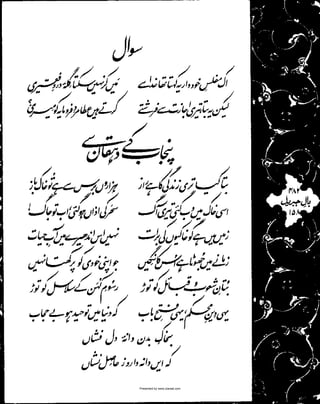 سوال
اک مفلسِ خوددار یہ کہتا تھا خدا سے
میں کر نہیں سکتا گلۂ دردِ فقیری
لیکن یہ بتا، تیری اجازت سے فرشتے
کرتے ہیں عطا مردِ فرومایہ کو میری؟
پنجاب کے دہقان سے
بتا کیا تری زندگی کا ہے راز
ہزاروں برس سے ہے تو خاک باز
اسی خاک میں دب گئی تیری آگ
سحر کی اذاں ہو گئی، اب تو جاگ
زمیں میں ہے گو خاکیوں کی برات
نہیں اس اندھیرے میں آبِ حیات
زمانے میں جھوٹا ہے اس کا نگیں
جو اپنی خودی کو پرکھتا نہیں
بتانِ شعوب و قبائل کو توڑ
رسومِ کہن کے سلاسل کو توڑ
یہی دینِ محکم، یہی فتحِ باب
کہ دنیا میں توحید ہو بے حجاب
بخاکِ بدن دانۂ دل فشاں
کہ ایں دانہ دارد ز حاصل نشاں
۴۸۲
بالِ جبریل
۱۵۸
Presented by www.ziaraat.com